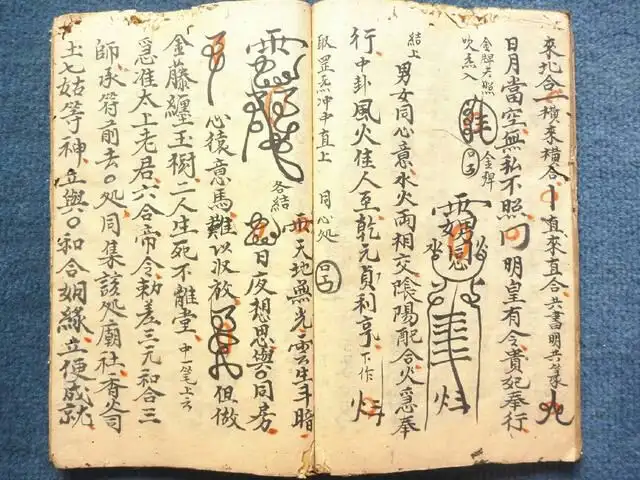 來地合一橫來橫合丨直來直合共書明共筆
日月當空無私不照 明皇有令貴妃奉行
金牌右照
吹炁入
金牌
結上
男女同心意水火兩相交陰陽配合火急奉
行中卦風火佳人至乾元貞利亨下作
取罡炁冲中直上 同心処
天地無光雲生斗暗
各結
日夜想思與〇同房
心猿意馬難以收放 但做
金藤纏玉樹二人生死不離堂中一笔上云
急准太上老君六合帝令勅差三元和合三
師承符前去〇処同集該処廟社香火司
土七姑等神立與〇和合姻緣立便成就